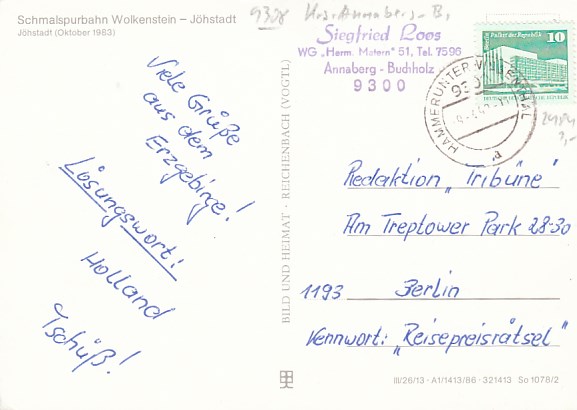 Schmalspurbahn Wolkenstein – Jöhstadt
Jöhstadt (Oktober 1983)
Viele Grüße
aus dem
Erzgebirge!
Lösungswort!
Holland
Tschüß!
BILD UND HEIMAT · REICHENBACH (VOGTL)
9308 Krs. Annaberg-B.
Siegfried Loos
WG „Herm. Matern" 51, Tel. 7596
Annaberg - Buchholz
9300
Palast der Republik
10
HAMMERUNTERWIESENTHAL
a
Redaktion „Tribüne"
Am Treptower Park 28-30
1193 Berlin
Kennwort: „Reisepreisrätsel"
III/26/13 · A1/1413/86 · 321413 So 1078/2